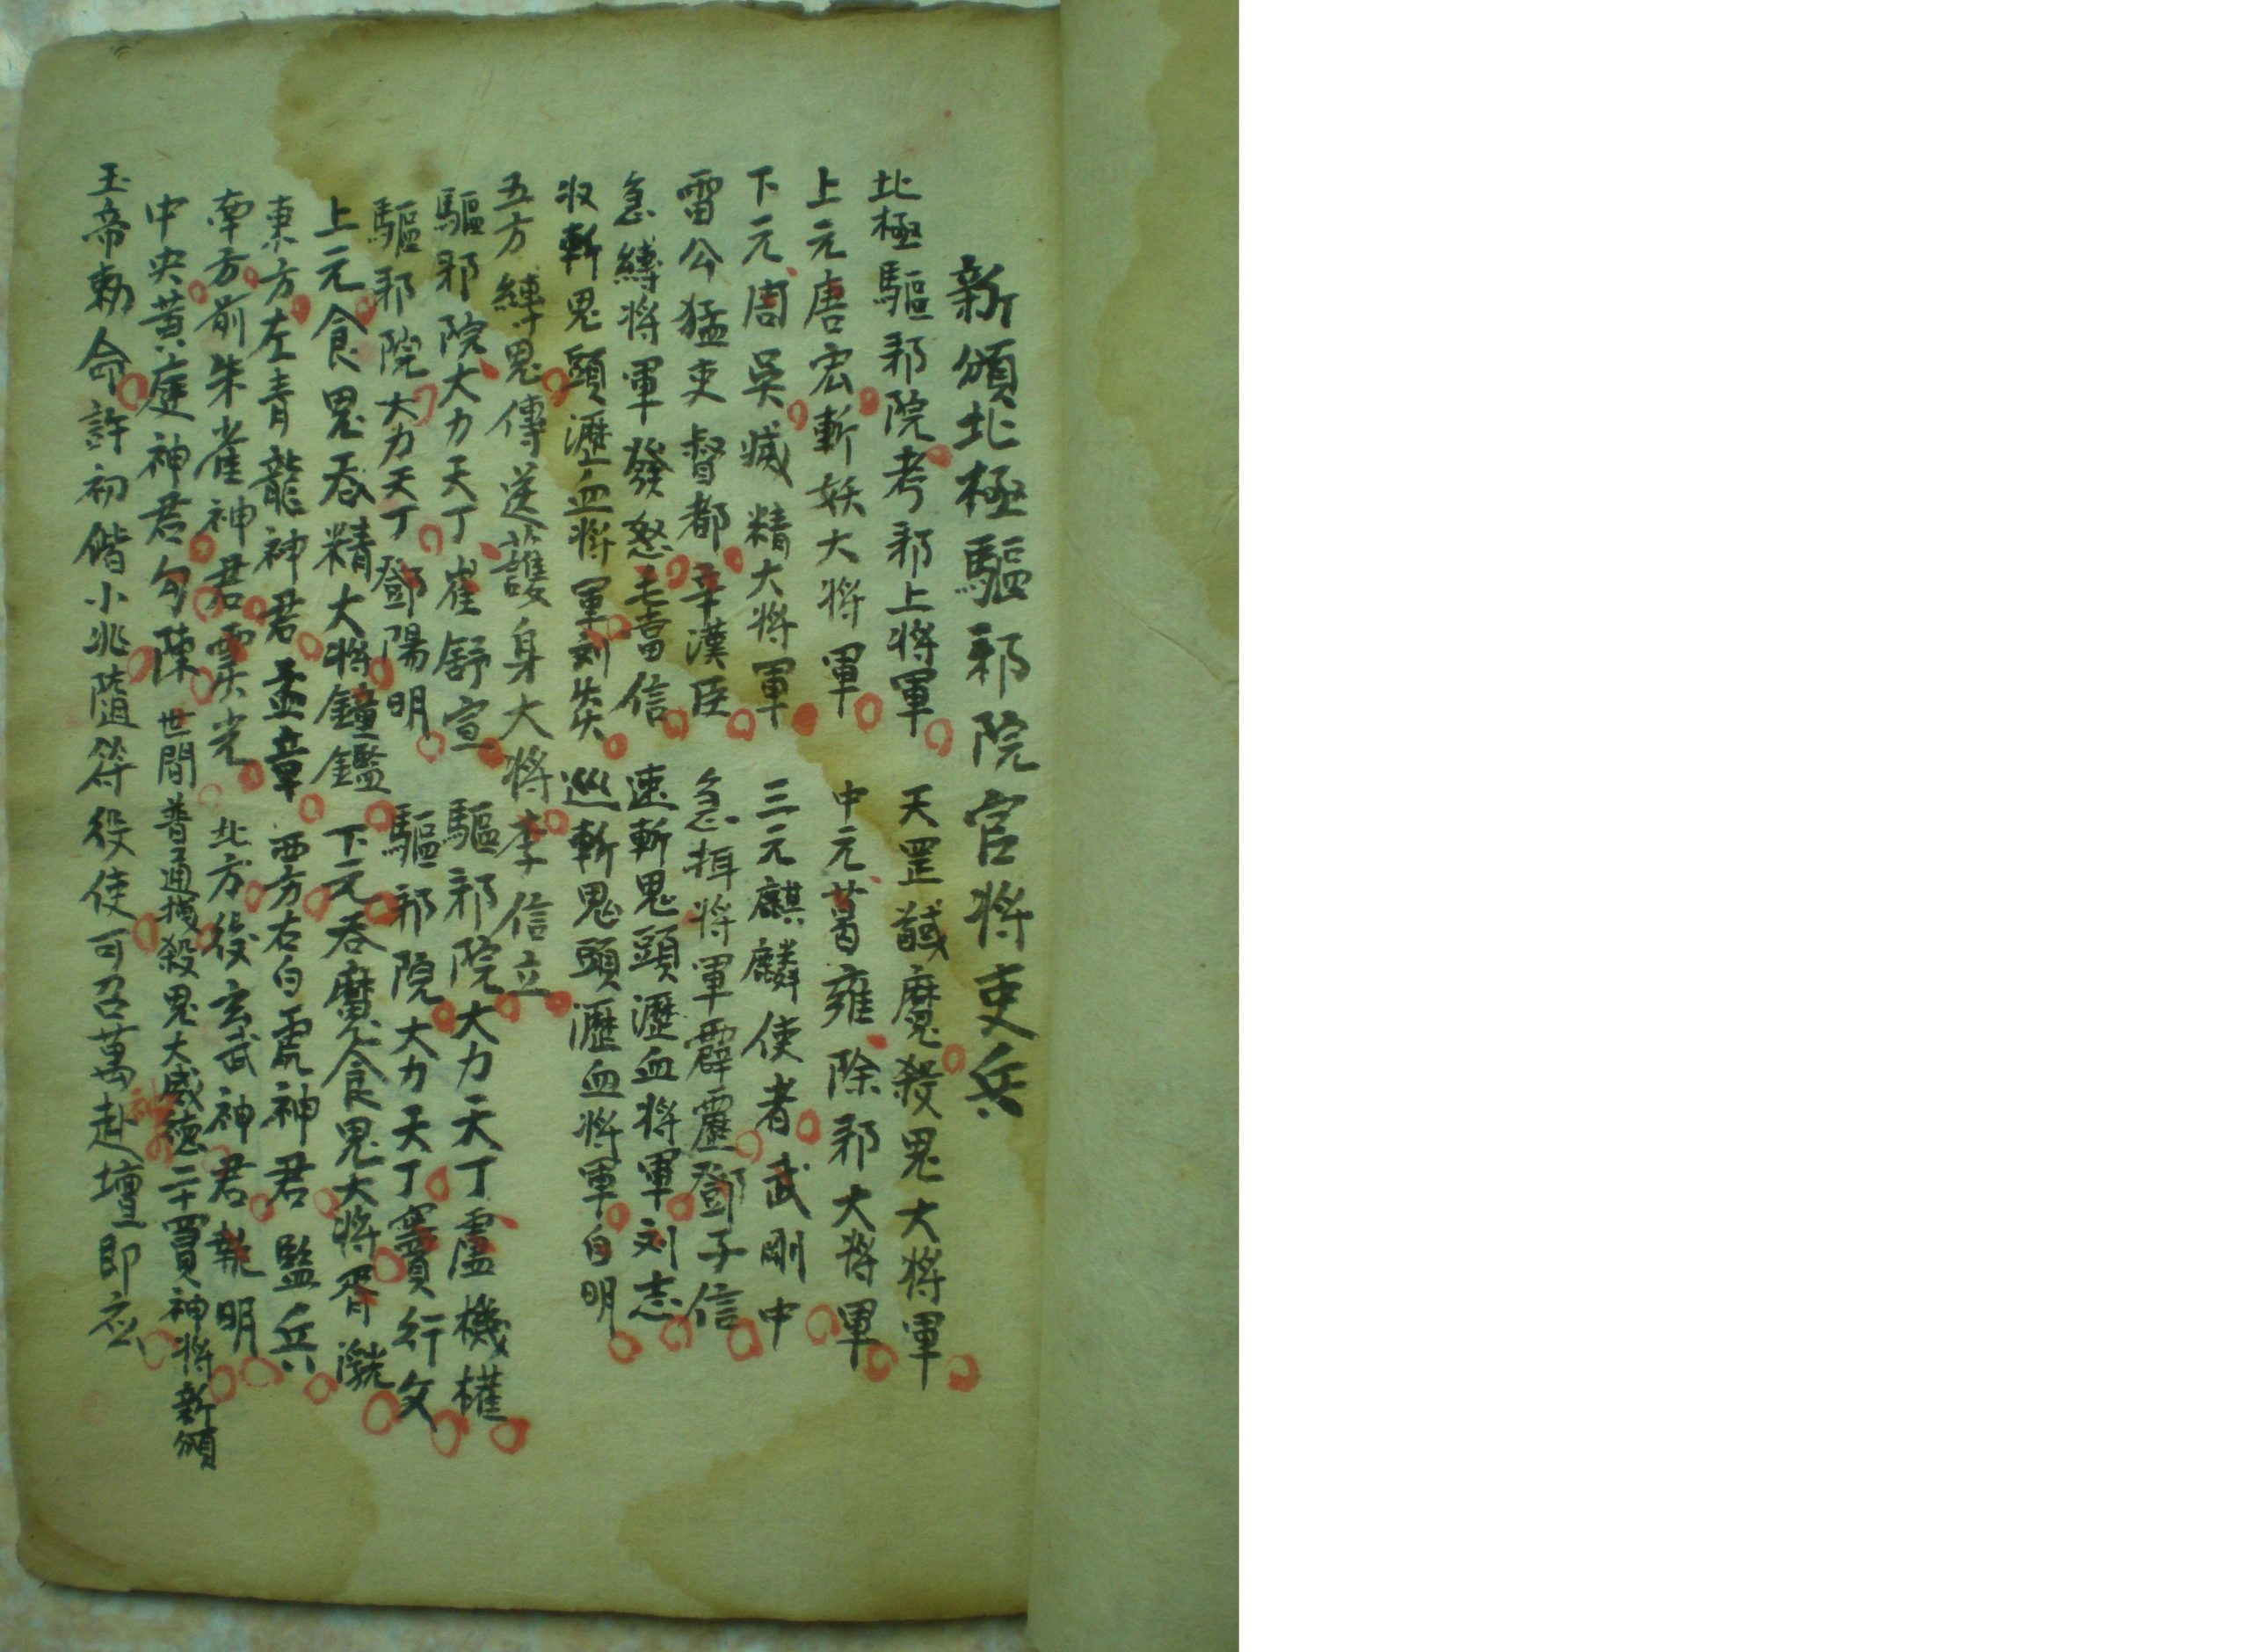 新頒北極驅邪院官將吏兵
北極驅邪院考邪上將軍 天罡馘魔殺鬼大將軍
上元唐宏斬妖大將軍 中元葛雍除邪大將軍
下元周吳滅精大將軍 三元麒麟使者武剛中
雷公猛吏督都辛漢臣 急捉將軍霹靂鄧子信
急縛將軍發怒毛喜信 速斬鬼頭瀝血將軍刘志
收斬鬼頭瀝血將軍刘 巡斬鬼頭瀝血將軍白明
五方縛鬼傳送護身大將李信立
驅邪院大力天丁崔舒宣 驅邪院大力天丁盧機權
驅邪院大力天丁鄧陽明 驅邪院大力天丁竇行文
上元食鬼吞精大將鐘鑑 下元吞魔食鬼大將胥
東方左青龍神君孟章 西方右白虎神君監兵
南方前朱雀神君靈光 北方後玄武神君執明
中央黃庭神君勾陳 世間普通殺鬼大威德二十買神將新頒
玉帝勅命許初偕小兆隨符役使可召萬赴壇即应